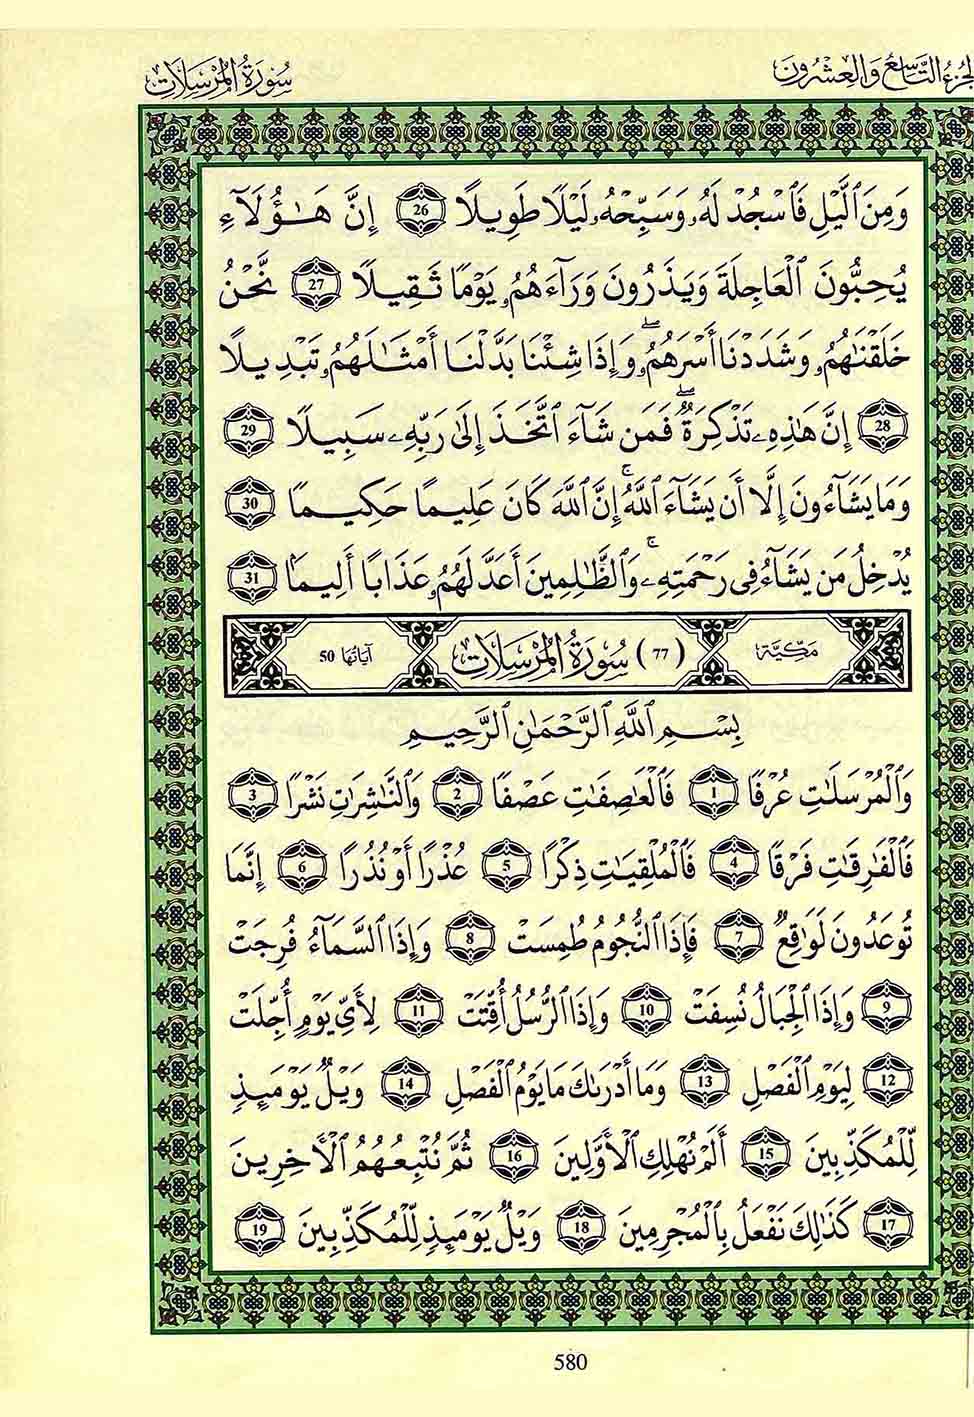 الجزء التاسع والعشرون
سورة المرسلات
وَمِنَ ٱلَّيْلِ فَٱسْجُدْ لَهُۥ وَسَبِّحْهُۥ لَيْلًا طَوِيلًا 26 إِنَّ هَـٰٓؤُلَآءِ
يُحِبُّونَ ٱلْعَاجِلَةَ وَيَذَرُونَ وَرَآءَهُمُۥ يَوْمًا ثَقِيلًا 27 نَّحْنُ
خَلَقْنَـٰهُمُۥ وَشَدَدْنَا أَسْرَهُمُۥۖ وَإِذَا شِئْنَا بَدَّلْنَا أَمْثَـٰلَهُمُۥ تَبْدِيلًا
28 إِنَّ هَـٰذِهِۦ تَذْكِرَةٌۖ فَمَن شَآءَ ٱتَّخَذَ إِلَىٰ رَبِّهِۦ سَبِيلًا 29
وَمَا يَشَآءُونَ إِلَّا أَن يَشَآءَ ٱللَّهُۚ إِنَّ ٱللَّهَ كَانَ عَلِيمًا حَكِيمًا 30
يُدْخِلُ مَن يَشَآءُ فِى رَحْمَتِهِۦۚ وَٱلظَّـٰلِمِينَ أَعَدَّ لَهُمُۥ عَذَابًا أَلِيمًۢا 31
مَكِّيَّة (77) سُورَةُ الْمُرْسَلَات آيَاتُهَا 50
بِسْمِ ٱللَّهِ ٱلرَّحْمَـٰنِ ٱلرَّحِيمِ
وَٱلْمُرْسَلَـٰتِ عُرْفًا 1 فَٱلْعَـٰصِفَـٰتِ عَصْفًا 2 وَٱلنَّـٰشِرَٰتِ نَشْرًا 3
فَٱلْفَـٰرِقَـٰتِ فَرْقًا 4 فَٱلْمُلْقِيَـٰتِ ذِكْرًا 5 عُذْرًا أَوْ نُذُرًا 6 إِنَّمَا
تُوعَدُونَ لَوَٰقِعٌ 7 فَإِذَا ٱلنُّجُومُ طُمِسَتْ 8 وَإِذَا ٱلسَّمَآءُ فُرِجَتْ
9 وَإِذَا ٱلْجِبَالُ نُسِفَتْ 10 وَإِذَا ٱلرُّسُلُ أُقِّتَتْ 11 لِأَىِّ يَوْمٍ أُجِّلَتْ
12 لِيَوْمِ ٱلْفَصْلِ 13 وَمَا أَدْرَىٰكَ مَا يَوْمُ ٱلْفَصْلِ 14 وَيْلٌ يَوْمَئِذٍ
لِّلْمُكَذِّبِينَ 15 أَلَمْ نُهْلِكِ ٱلْأَوَّلِينَ 16 ثُمَّ نُتْبِعُهُمُ ٱلْأَخِرِينَ
17 كَذَٰلِكَ نَفْعَلُ بِٱلْمُجْرِمِينَ 18 وَيْلٌ يَوْمَئِذٍ لِّلْمُكَذِّبِينَ 19
580